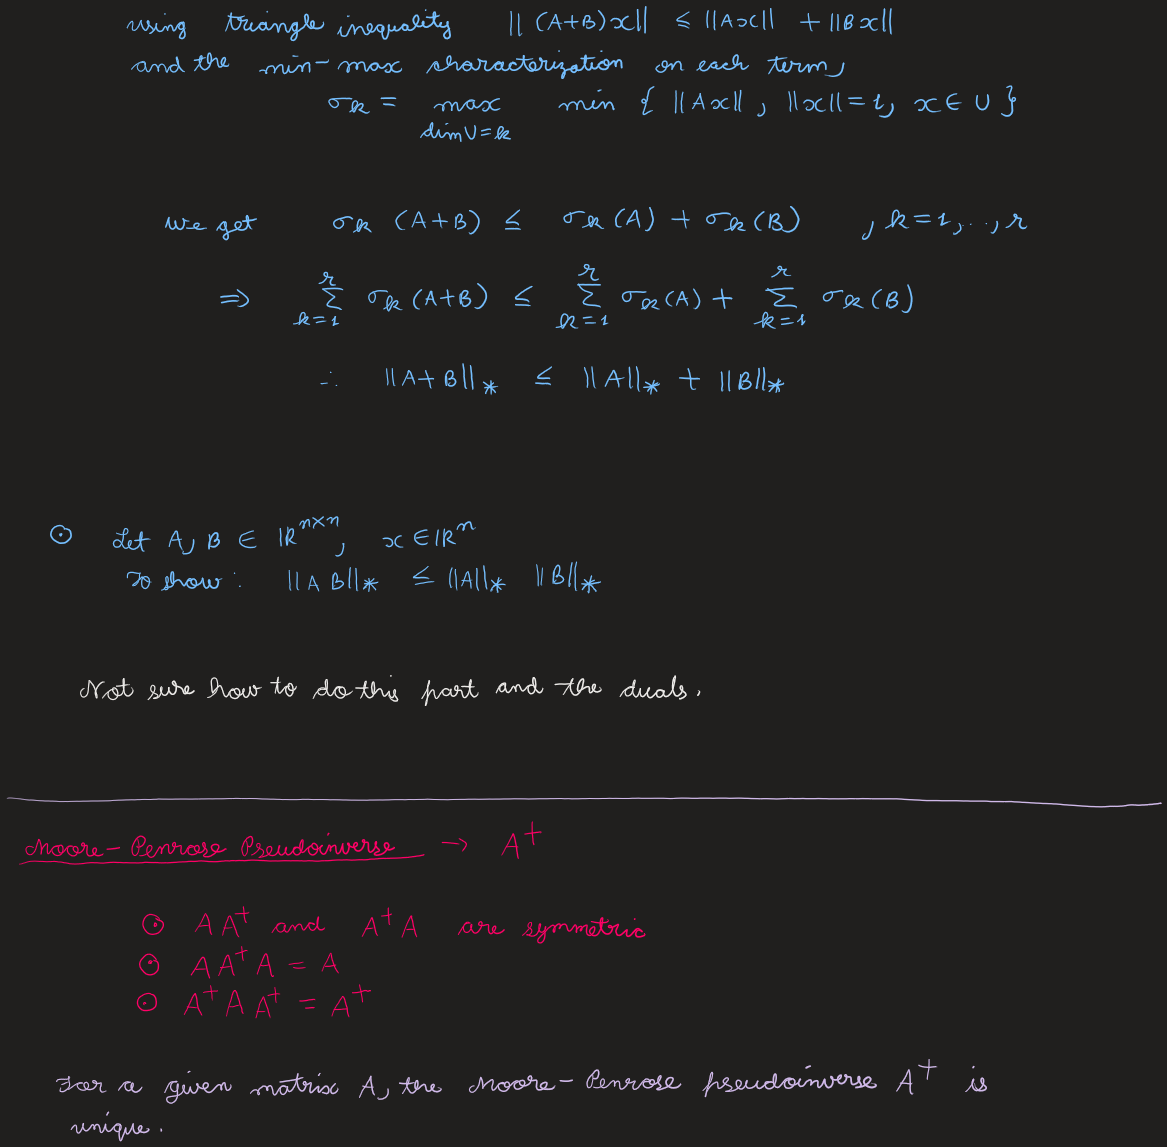 using triangle inequality ||(A+B)x|| ≤ ||Ax|| + ||Bx||
and the min-max characterization on each term,
σk = max min { ||Ax|| , ||x|| = 1, x ∈ U }
dim U = k
we get σk (A+B) ≤ σk (A) + σk (B) , k = 1, ..., r
⇒ r∑k=1 σk (A+B) ≤ r∑k=1 σk (A) + r∑k=1 σk (B)
∴ ||A+B||* ≤ ||A||* + ||B||*
⊙ Let A, B ∈ ℝ^{n×n}, x ∈ ℝ^n
To show : ||AB||* ≤ ||A||* ||B||*
Not sure how to do this part and the duals.
Moore-Penrose Pseudoinverse → A⁺
⊙ AA⁺ and A⁺A are symmetric
⊙ AA⁺A = A
⊙ A⁺AA⁺ = A⁺
For a given matrix A, the Moore-Penrose pseudoinverse A⁺ is
unique.